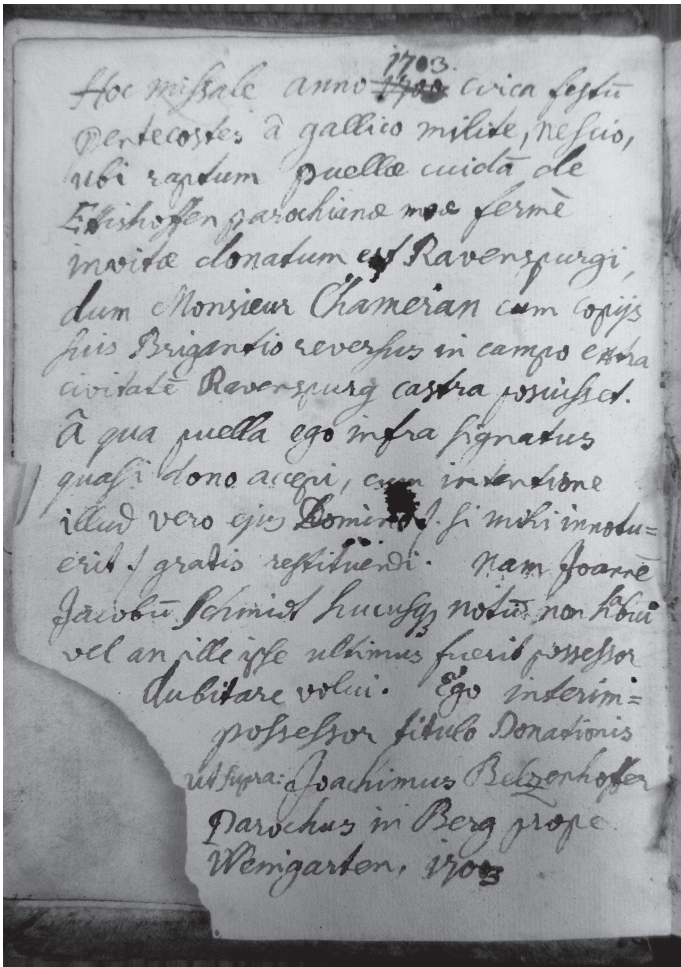 1703.
Hoc missale anno 1700 circa festū
Pentecostes â gallico milite, nescio,
ubi raptum puellæ cuidā de
Ettishoffen parochianæ meæ fermè
invitæ donatum est Ravenspurgi,
dum Monsieur Chameran cum copijs
suis Brigantio reversus in campo extra
civitatē Ravenspurg castra posuisset.
Â qua puella ego infra signatus
quasi dono accepi, cum intentione
illud vero ejus Domino /. si mihi innotu=
erit ./ gratis restituendi. Nam Joannē
Jacobū Schmidt hucusq notū non habui
vel an ille ipse ultimus fuerit possessor
dubitare volui. Ego interim=
possessor titulo Donationis
ut supra: Joachimus Belzenhoffer
Parochus in Berg prope
Weingarten. 1703